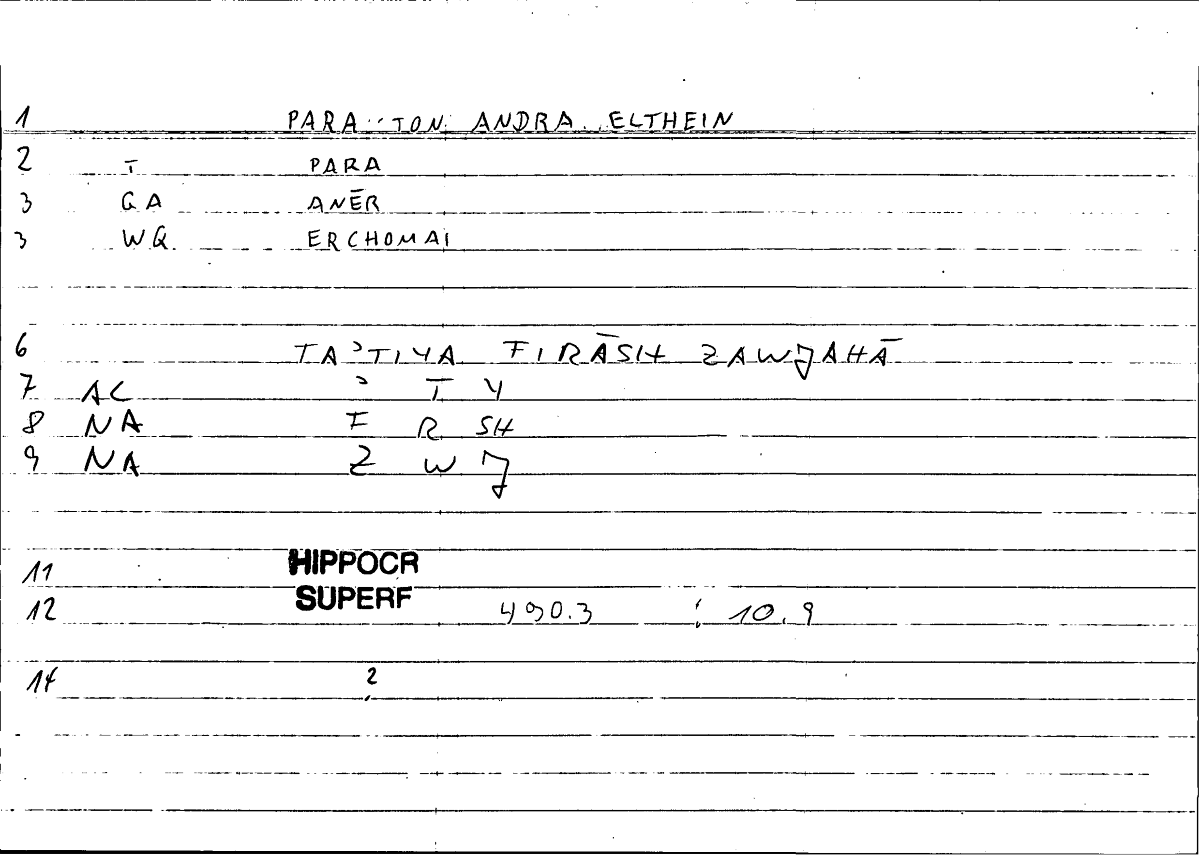 1 PARA TON ANDRA ELTHEIN
2 T PARA
3 GA ANĒR
3 WQ ERCHOMAI
6 TAʾTIYA FIRĀSH ZAWJAHĀ
7 AC ʾ T Y
8 NA F R SH
9 NA Z W J
11 HIPPOCR
12 SUPERF 490.3 ; 10.9
14 2